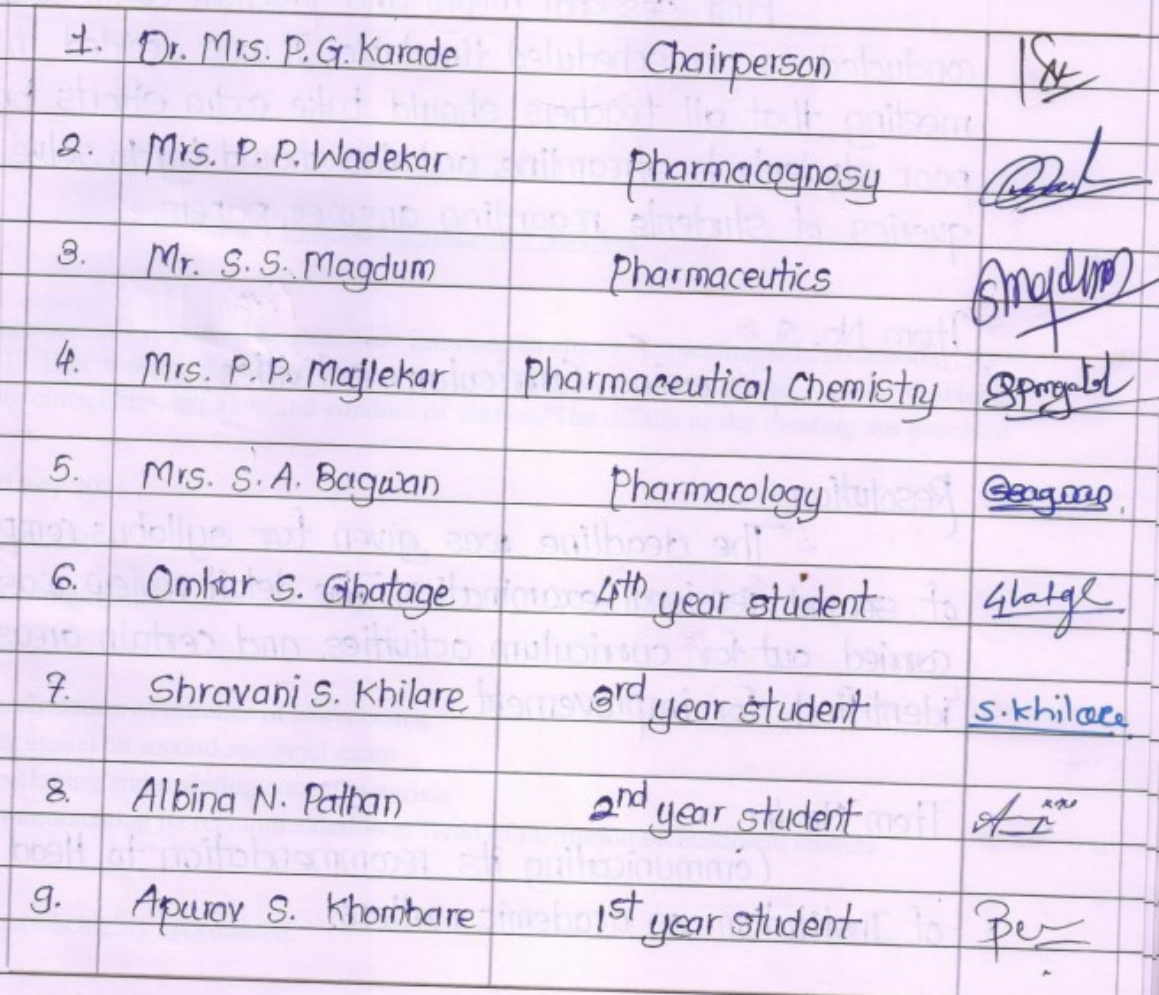 1. Dr. Mrs. P. G. Karade Chairperson
2. Mrs. P. P. Wadekar Pharmacognosy
3. Mr. S. S. Magdum Pharmaceutics Smagdum
4. Mrs. P. P. Majlekar Pharmaceutical Chemistry
5. Mrs. S. A. Bagwan Pharmacology
6. Omkar S. Ghatage 4th year student
7. Shravani S. Khilare 3rd year student S. Khilare
8. Albina N. Pathan 2nd year student
9. Apurav S. Khombare 1st year student